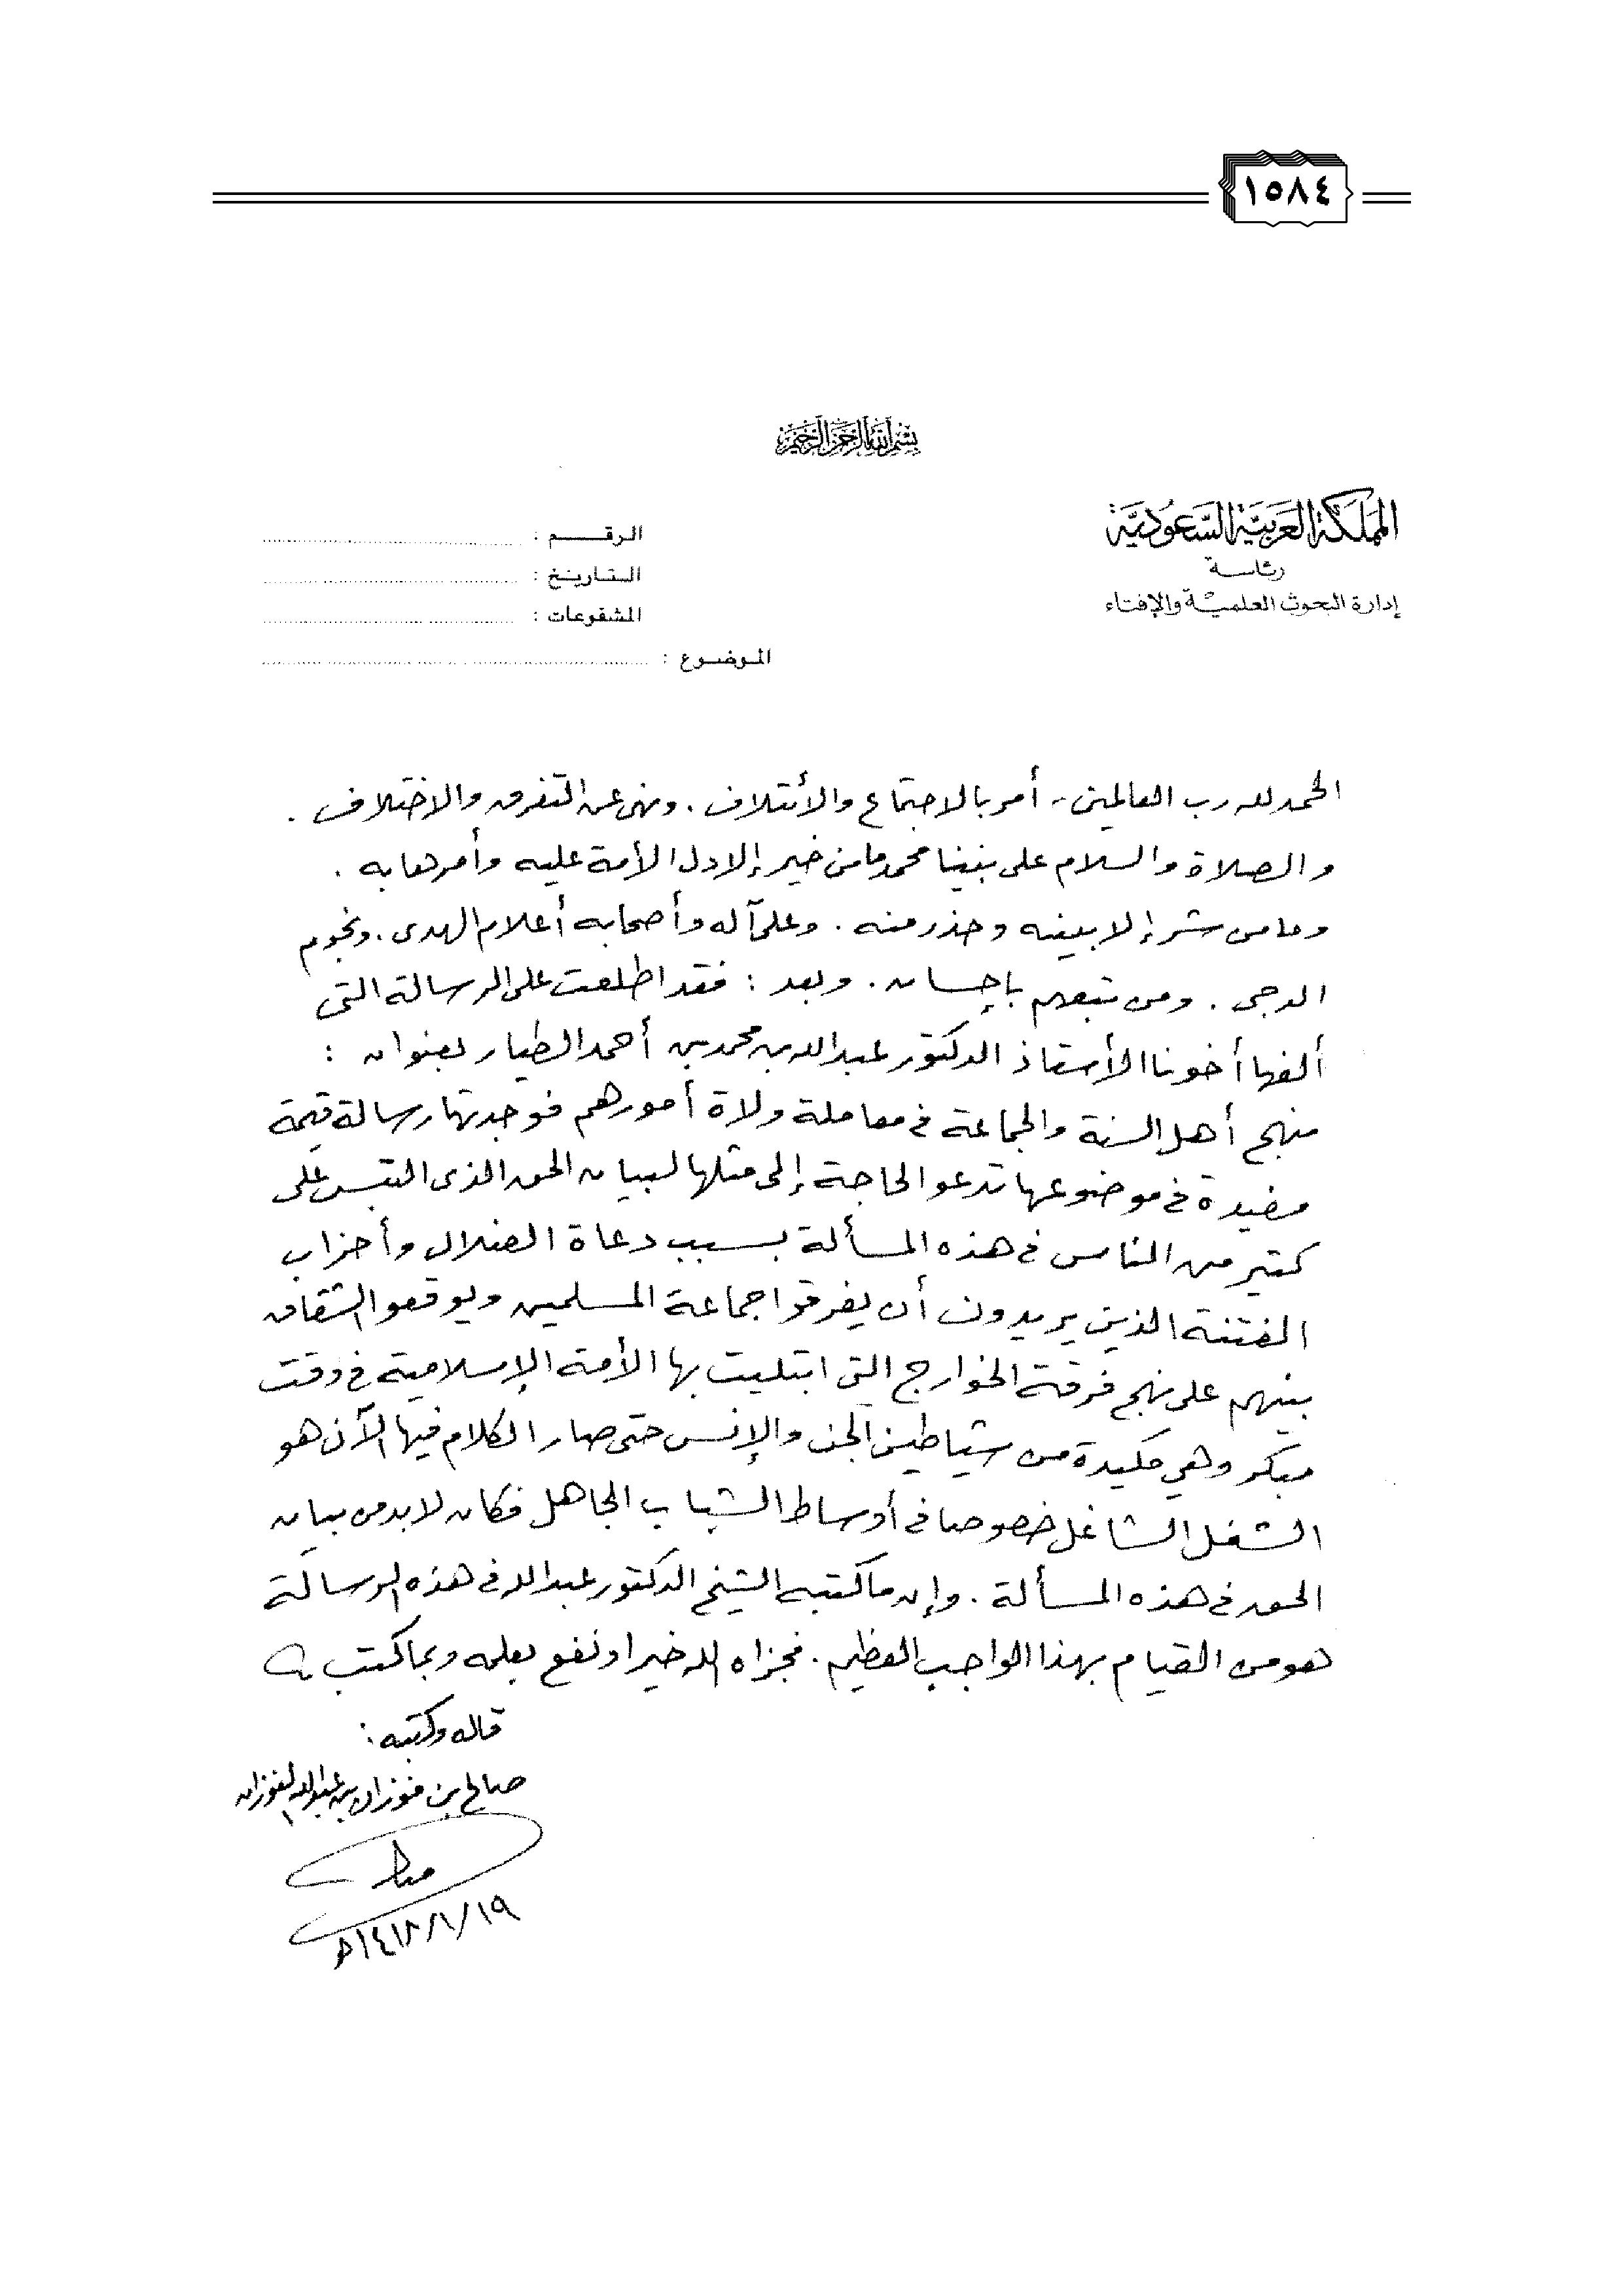 ١٥٨٤
بسم الله الرحمن الرحيم
المملكة العربية السعودية
رئاسة
إدارة البحوث العلمية والإفتاء
الرقم :
التاريخ :
المشفوعات :
الموضوع :
الحمد لله رب العالمين - أمر بالاجتماع والأئتلاف . ونهى عن التفرق والاختلاف .
والصلاة والسلام على نبينا محمد ما من خير إلا دل الأمة عليه وأمرها به .
وما من شر إلا بينه وحذر منه . وعلى آله وأصحابه أعلام الهدى . ونجوم
الدجى . ومن تبعهم بإحسان . وبعد : فقد اطلعت على الرسالة التى
ألفها أخونا الأستاذ الدكتور عبدالله بن محمد بن أحمد الطيار بعنوان :
منهج أهل السنة والجماعة في معاملة ولاة أمورهم فوجدتها رسالة قيمة
مفيدة في موضوعها تدعو الحاجة إلى مثلها لبيان الحق الذى التبس على
كثير من الناس في هذه المسألة بسبب دعاة الضلال وأحزاب
الفتنة الذين يريدون أن يفرقوا جماعة المسلمين ويوقعوا الشقاق
بينهم على نهج فرقة الخوارج التى ابتليت بها الأمة الإسلامية في وقت
مبكر وهي مكيدة من شياطين الجن والإنس حتى صار الكلام فيها الآن هو
الشغل الشاغل خصوصا في أوساط الشباب الجاهل فكان لابد من بيان
الحق في هذه المسألة . وإن ما كتبه الشيخ الدكتور عبدالله في هذه الرسالة
هو من القيام بهذا الواجب العظيم . فجزاه الله خيرا ونفع بعلمه وبما كتب
قاله وكتبه :
صالح بن فوزان بن عبدالله الفوزان
١٤١٨/١/١٩هـ